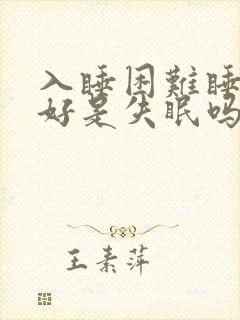 入睡困難睡
好是失眠吗
王素萍